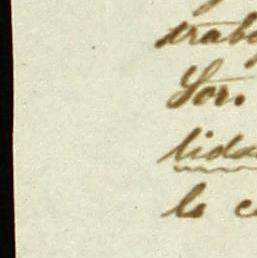 trab
Sor.
lida
le c